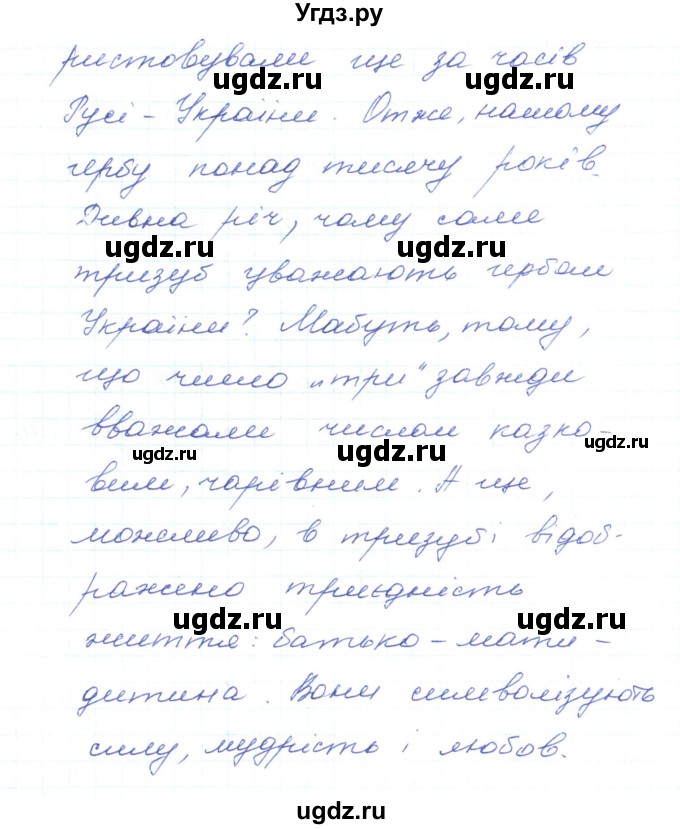 Угдз.ру
ристовували ще за часів
ugdz.ru ugdz.ru
Русі - України. Отже, нашому
ugdz.ru
гербу понад тисячу років.
Дивна річ, чому саме
ugdz.ru ugdz.ru
тризуб уважають гербом
України? Мабуть, тому,
ugdz.ru ugdz.ru
що число „три" завжди
вважали числом казко-
ugdz.ru ugdz.ru ugdz.ru
вим, чарівним. А ще,
можливо, в тризубі відоб-
ражено триєдність
ugdz.ru ugdz.ru
життя: батько - мати -
дитина. Вони символізують
ugdz.ru ugdz.ru
силу, мудрість і любов.
ugdz.ru